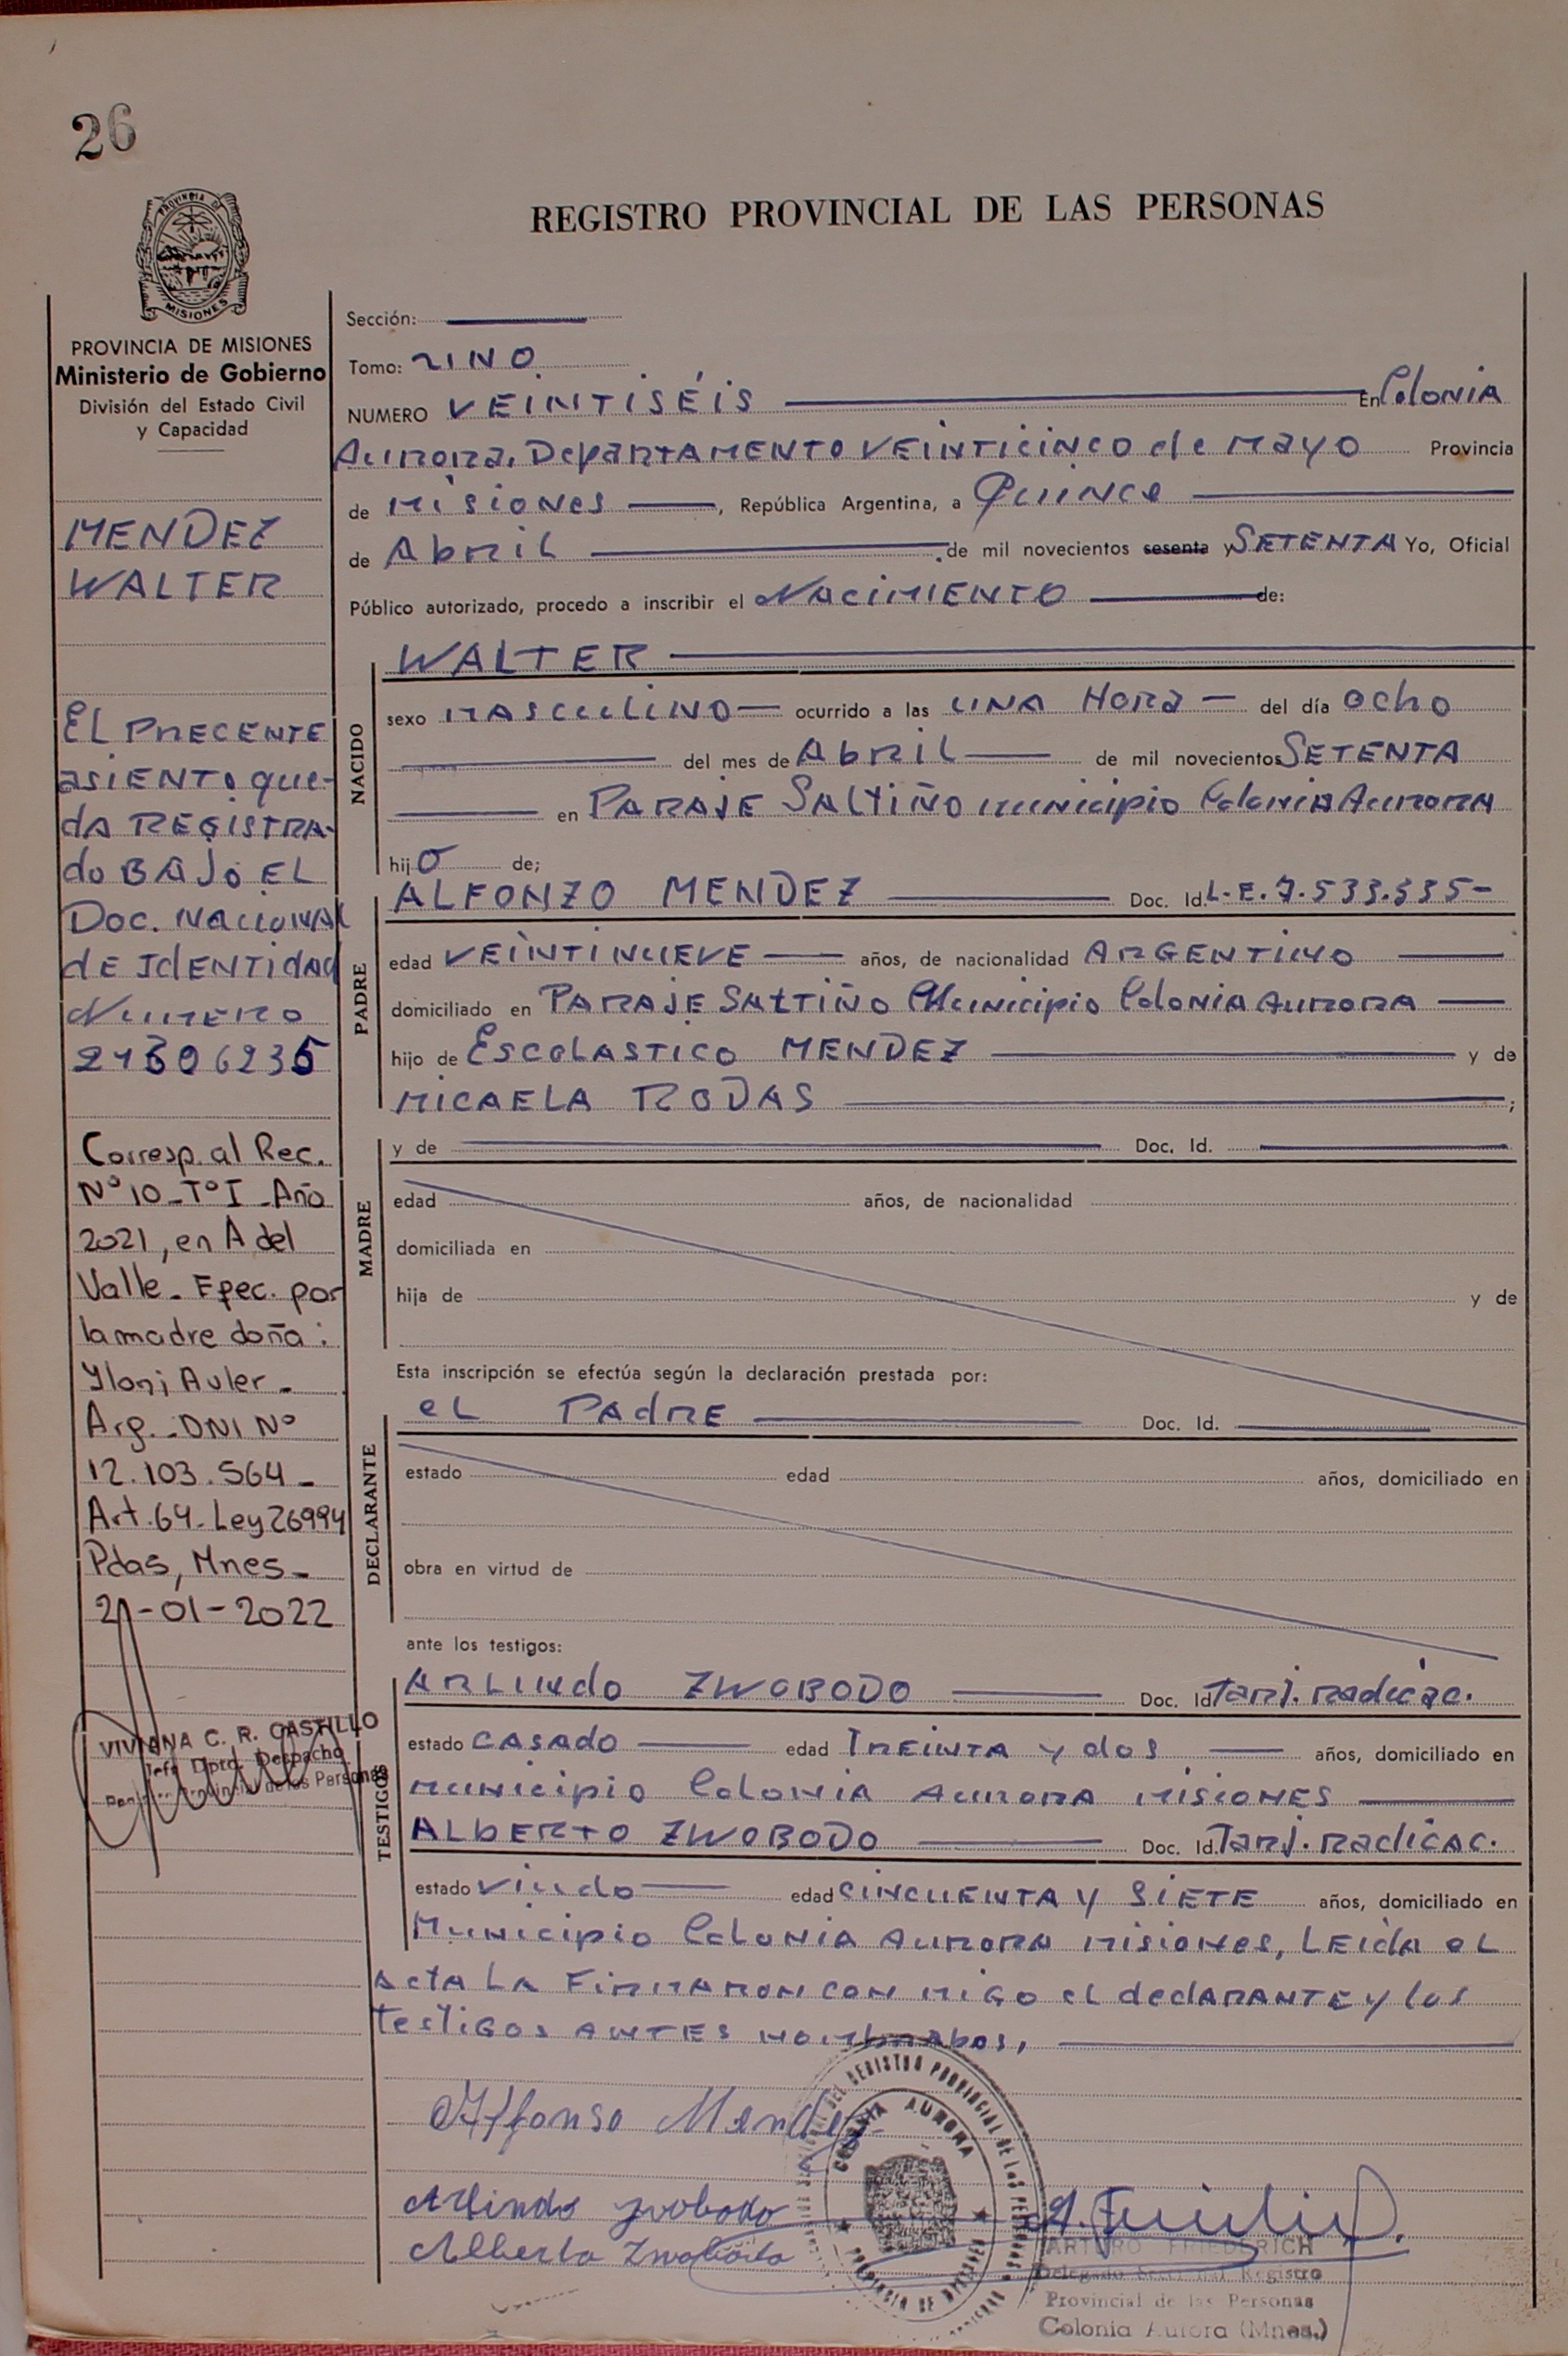 26
PROVINCIA DE
MISIONES
REGISTRO PROVINCIAL DE LAS PERSONAS
PROVINCIA DE MISIONES
Ministerio de Gobierno
División del Estado Civil
y Capacidad
MENDEZ
WALTER
EL PRECENTE
asIENTO que-
da REGISTRA-
do BAJO EL
Doc. NacioNAL
dE IdENTIdAd
NUMERO
21306235
Corresp. al Rec.
Nº 10 - Tº I - Año
2021, en A del
Valle - Efec. por
la madre doña:
Yloni Auler -
Arg. - DNI Nº
12.103.564 -
Art. 64 - Ley 26994
Pdas, Mnes -
21-01-2022
VIVIANA C. R. CASTILLO
Jefe Dpto. Despacho
Provincial de las Personas
Sección:
Tomo: UNO
NUMERO VEINTISÉIS En Colonia
Aurora, DepartAMENTO VEINTICINCO de Mayo Provincia
de Misiones, República Argentina, a Quince
de Abril de mil novecientos sesenta y SETENTA Yo, Oficial
Público autorizado, procedo a inscribir el NaciMIENTO de:
WALTER
NACIDO
sexo MASculiNO ocurrido a las UNA Hora del día ocho
del mes de Abril de mil novecientos SETENTA
en PARAJE SALTIÑO municipio Colonia Aurora
hijo de;
PADRE
ALFONZO MENDEZ Doc. Id. L.E. 7.533.535-
edad VEINTINUEVE años, de nacionalidad ARGENTINO
domiciliado en PARAJE SALTIÑO Municipio Colonia Aurora
hijo de EscolASTICO MENDEZ y de
MICAELA RODAS ;
MADRE
y de Doc. Id.
edad años, de nacionalidad
domiciliada en
hija de y de
Esta inscripción se efectúa según la declaración prestada por:
DECLARANTE
eL PAdRE Doc. Id.
estado edad años, domiciliado en
obra en virtud de
ante los testigos:
TESTIGOS
ARLINdo ZWOBODO Doc. Id. Tarj. radicac.
estado CASADO edad TREINTA y dos años, domiciliado en
Municipio Colonia AURORA MISIONES
ALBERTO ZWOBODO Doc. Id. Tarj. radicac.
estado Viudo edad CINCUENTA y SIETE años, domiciliado en
Municipio Colonia Aurora Misiones, LEida eL
acta La FirmaRON CON migo el declARANTE y los
testigos ANTES nombrados,
Alfonso Mendez
Arlindo Zwobodo
Alberto Zwobodo
DEL REGISTRO PROVINCIAL DE LAS PERSONAS
COLONIA AURORA
PROVINCIA DE MISIONES
ARTURO FRIEDERICH
Delegado Seccional Registro
Provincial de las Personas
Colonia Aurora (Mnes.)